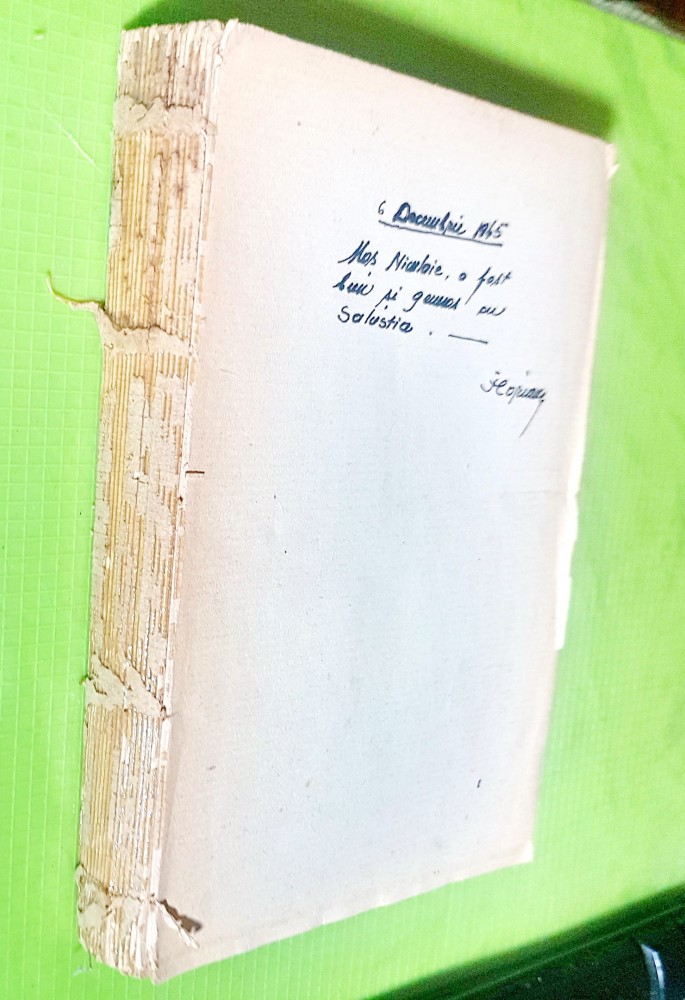 6 Decembrie 1945
Moș Nicolaie, a fost
bun și generos cu
Salustia. —